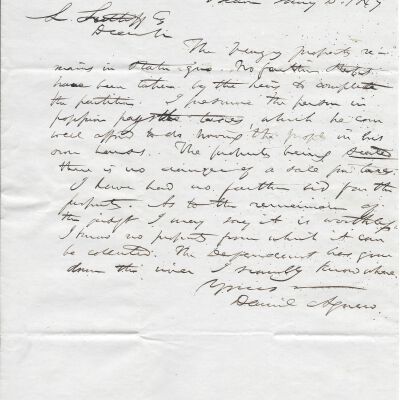 Dear Sir
The Benzy property re-
mains in statu quo. No further steps
have been taken by the heirs to complete
the partition. I presume the person in
pays the taxes, which he can
well afford to do having the property in his
own hands. The property being
there is no danger of a sale for taxes.
I have had no further bid for the
property. As to the remainder of
the judgt I may say it is worthless
I know no property from which it can
be collected. The Defendant has gone
down the river I scarcely know where.
Yours
Daniel Agnew.